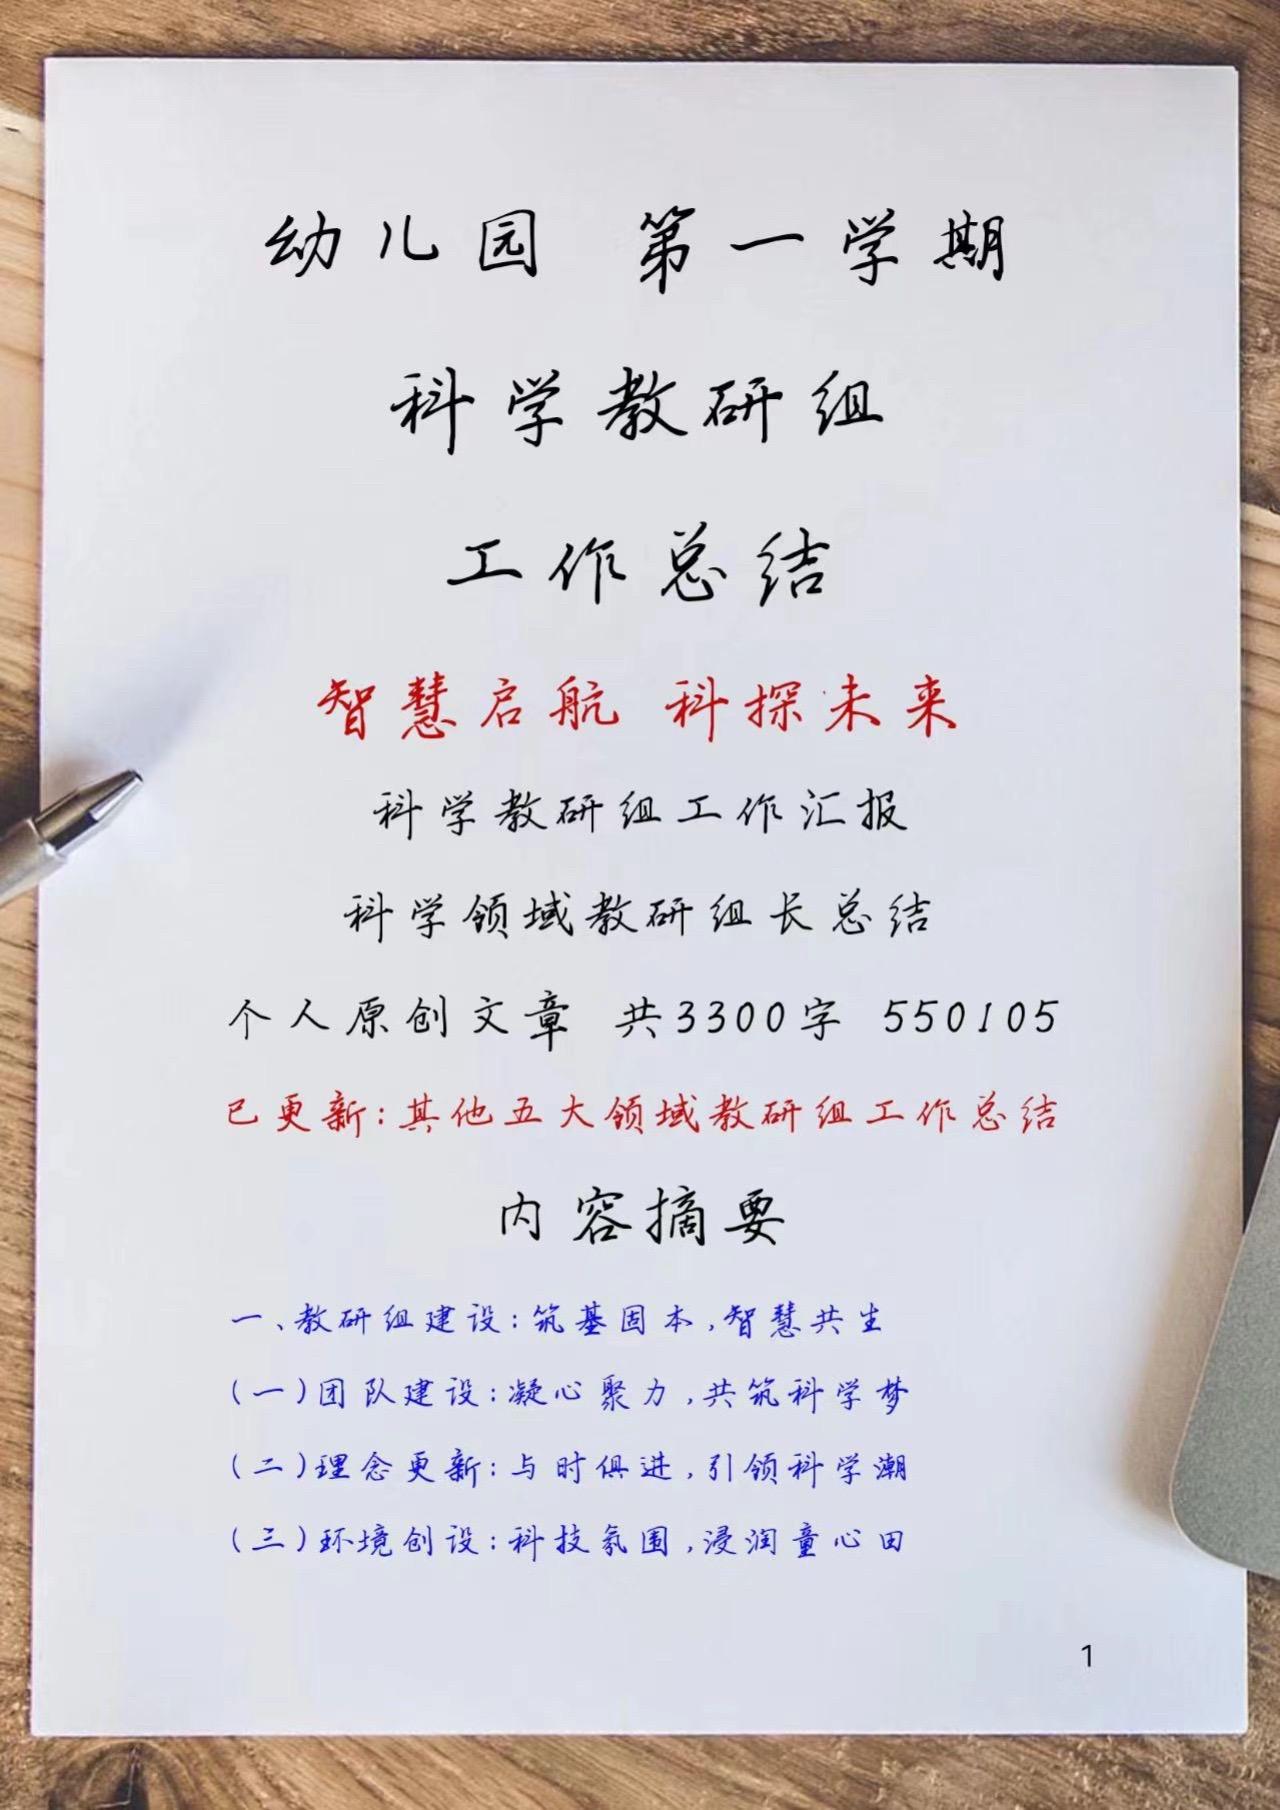 幼儿园 第一学期
科学教研组
工作总结
智慧启航 科探未来
科学教研组工作汇报
科学领域教研组长总结
个人原创文章 共3300字 550105
已更新:其他五大领域教研组工作总结
内容摘要
一、教研组建设:筑基固本,智慧共生
(一)团队建设:凝心聚力,共筑科学梦
(二)理念更新:与时俱进,引领科学潮
(三)环境创设:科技氛围,浸润童心田
1